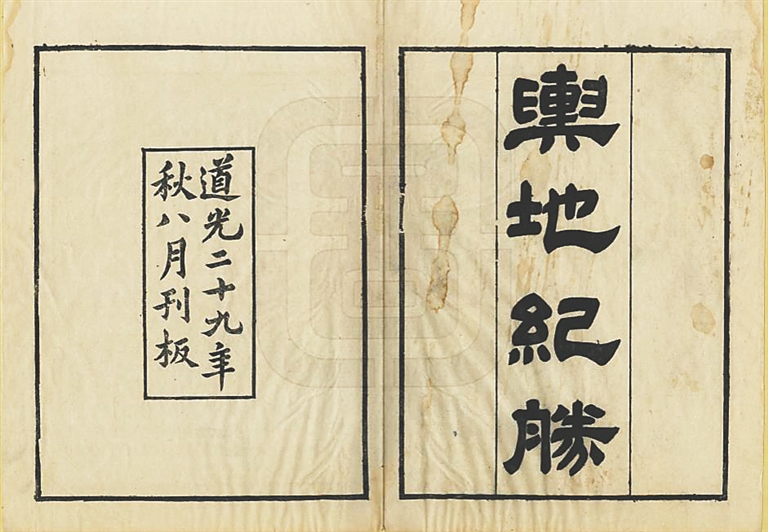 輿地紀勝
道光二十九年
秋八月刊板